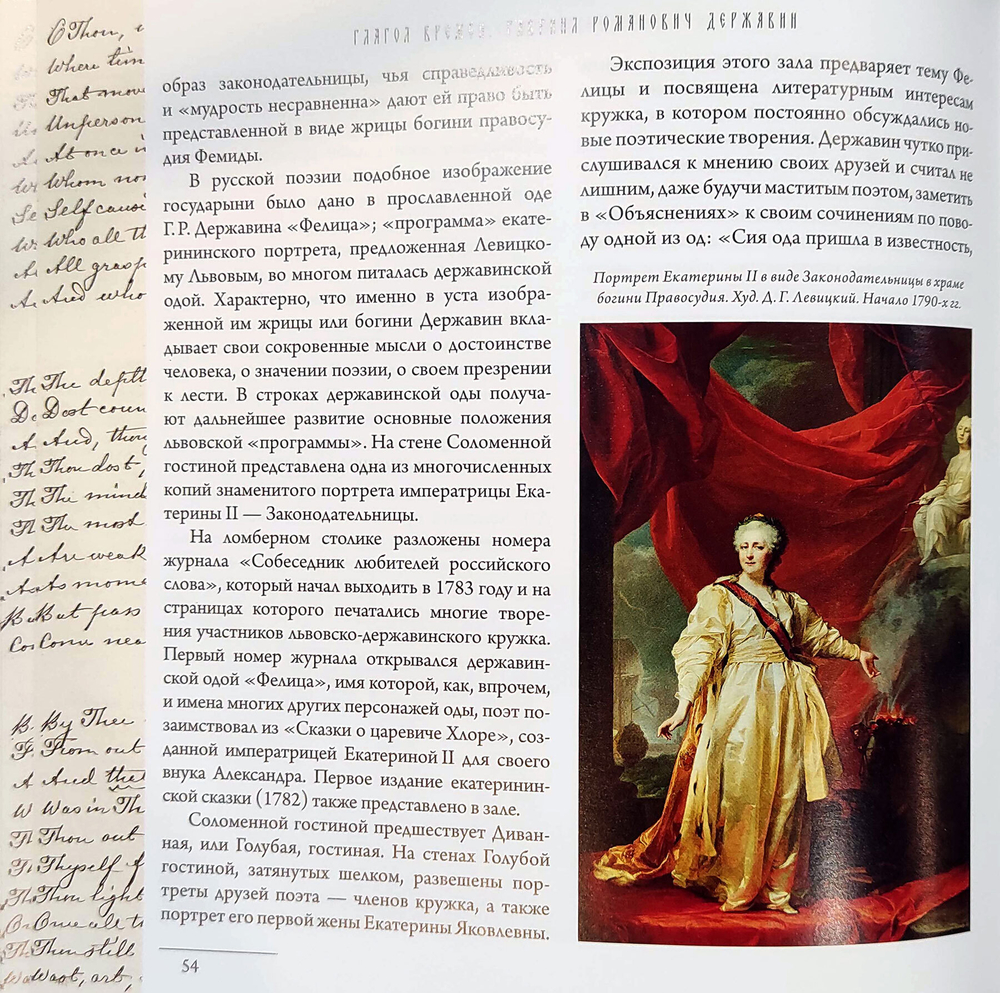 ГЛАГОЛ ВРЕМЕН. ГАВРИИЛ РОМАНОВИЧ ДЕРЖАВИН
образ законодательницы, чья справедливость
и «мудрость несравненна» дают ей право быть
представленной в виде жрицы богини правосу-
дия Фемиды.
В русской поэзии подобное изображение
государыни было дано в прославленной оде
Г. Р. Державина «Фелица»; «программа» екате-
рининского портрета, предложенная Левицко-
му Львовым, во многом питалась державинской
одой. Характерно, что именно в уста изобра-
женной им жрицы или богини Державин вкла-
дывает свои сокровенные мысли о достоинстве
человека, о значении поэзии, о своем презрении
к лести. В строках державинской оды получа-
ют дальнейшее развитие основные положения
львовской «программы». На стене Соломенной
гостиной представлена одна из многочисленных
копий знаменитого портрета императрицы Ека-
терины II — Законодательницы.
На ломберном столике разложены номера
журнала «Собеседник любителей российского
слова», который начал выходить в 1783 году и на
страницах которого печатались многие творе-
ния участников львовско-державинского кружка.
Первый номер журнала открывался державин-
ской одой «Фелица», имя которой, как, впрочем,
и имена многих других персонажей оды, поэт по-
заимствовал из «Сказки о царевиче Хлоре», соз-
данной императрицей Екатериной II для своего
внука Александра. Первое издание екатеринин-
ской сказки (1782) также представлено в зале.
Соломенной гостиной предшествует Диван-
ная, или Голубая, гостиная. На стенах Голубой
гостиной, затянутых шелком, развешены пор-
треты друзей поэта — членов кружка, а также
портрет его первой жены Екатерины Яковлевны.
54
Экспозиция этого зала предваряет тему Фе-
лицы и посвящена литературным интересам
кружка, в котором постоянно обсуждались но-
вые поэтические творения. Державин чутко при-
слушивался к мнению своих друзей и считал не
лишним, даже будучи маститым поэтом, заметить
в «Объяснениях» к своим сочинениям по пово-
ду одной из од: «Сия ода пришла в известность,
Портрет Екатерины II в виде Законодательницы в храме
богини Правосудия. Худ. Д. Г. Левицкий. Начало 1790-х гг.
O Thou,
Where tim
That move
Unperson
At once
Whom no
Self caus
Who all th
All grasp
And who
The depth
Dost coun
And, thou
Thou dost,
The mind
The most
Are weak
As mome
But pass
Come nea
By Thee
From out
And the
Was in Th
Thou out
Thyself f
Thou light
One all t
Thou still
Wast, art,